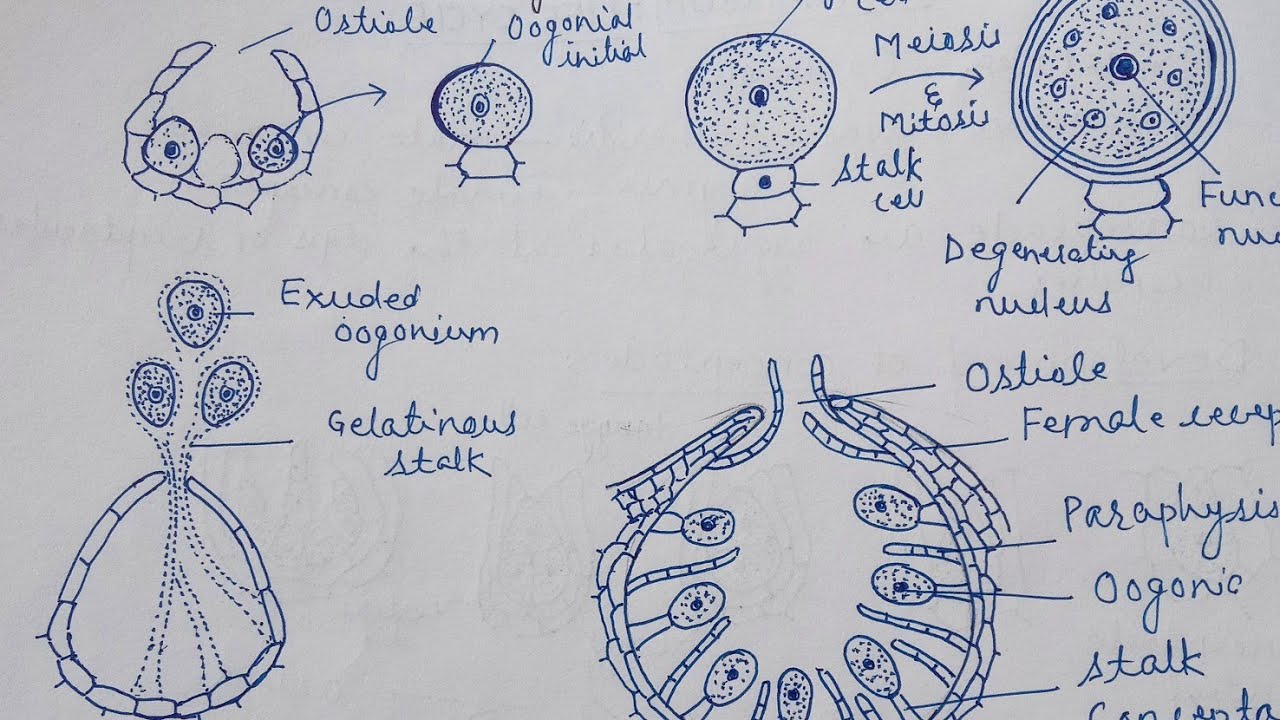 Ostiole
Oogonial
initial
cell
Meiosis
&
Mitosis
Stalk
cell
Func
nuc
Degenerating
nucleus
Exuded
oogonium
Gelatinous
stalk
Ostiole
Female recep
Paraphysis
Oogonic
stalk
Concepta